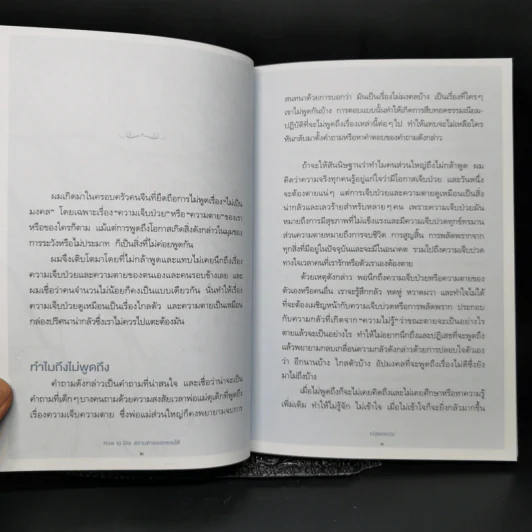 ผมเกิดมาในครอบครัวคนจีนที่ยึดถือการไม่พูดเรื่อง“ไม่เป็น
มงคล” โดยเฉพาะเรื่อง“ความเจ็บป่วย”หรือ“ความตาย”ของเรา
หรือของใครก็ตาม แม้แต่การพูดถึงโอกาสเกิดสิ่งดังกล่าวในมุมของ
การระวังหรือไม่ประมาท ก็เป็นสิ่งที่ไม่ค่อยพูดกัน
ผมจึงเติบโตมาโดยที่ไม่กล้าพูดและแทบไม่เคยนึกถึงเรื่อง
ความเจ็บป่วยและความตายของตนเองและคนรอบข้างเลย และ
ผมเชื่อว่าคนจำนวนไม่น้อยก็คงเป็นแบบเดียวกัน นั่นทำให้เรื่อง
ความเจ็บป่วยดูเหมือนเป็นเรื่องไกลตัว และความตายเป็นเหมือน
กล่องปริศนาน่ากลัวซึ่งเราไม่ควรไปแตะต้องมัน
ทำไมถึงไม่พูดถึง
คำถามดังกล่าวเป็นคำถามที่น่าสนใจ และเชื่อว่าน่าจะเป็น
คำถามที่เด็กๆ บางคนถามด้วยความสงสัยเวลาพ่อแม่ดุเด็กที่พูดถึง
เรื่องความเจ็บความตาย ซึ่งพ่อแม่ส่วนใหญ่ก็คงพยายามจบการ
How to Die
สนทนาด้วยการบอกว่า มันเป็นเรื่องไม่มงคลบ้าง เป็นเรื่องที่ใครๆ
เราไม่พูดกันบ้าง การตอบแบบนั้นทำให้เกิดการสืบทอดธรรมเนียม-
ปฏิบัติที่จะไม่พูดถึงเรื่องเหล่านี้ต่อๆ ไป ทำให้แทบจะไม่เหลือใคร
หันกลับมาตั้งคำถามหรือหาคำตอบของคำถามดังกล่าว
ถ้าจะให้สันนิษฐานว่าทำไมคนส่วนใหญ่ถึงไม่กล้าพูด ผม
คิดว่าความจริงทุกคนรู้อยู่แก่ใจว่ามีโอกาสเจ็บป่วย และวันหนึ่ง
จะต้องตายแน่ๆ แต่การเจ็บป่วยและความตายดูเหมือนเป็นสิ่ง
น่ากลัวและเลวร้ายสำหรับหลายๆ คน เพราะความเจ็บป่วยมัน
หมายถึงการมีสุขภาพที่ไม่แข็งแรงและมีความเจ็บปวดทุกข์ทรมาน
ส่วนความตายหมายถึงการจบชีวิต การสูญสิ้น การพลัดพรากจาก
ทุกสิ่งที่มีอยู่ในปัจจุบันและจะมีในอนาคต รวมไปถึงความเจ็บปวด
ทางใจเวลาคนที่เรารักหรือตัวเราเองต้องตาย
ด้วยเหตุดังกล่าว พอนึกถึงความเจ็บป่วยหรือความตายของ
ตัวเองหรือคนอื่น เราจะรู้สึกกลัว หดหู่ หวาดผวา และทำใจไม่ได้
ที่จะต้องเผชิญหน้ากับความเจ็บปวดหรือการพลัดพราก ประกอบ
กับความกลัวที่เกิดจาก“ความไม่รู้”ว่าขณะตายจะเป็นอย่างไร
ตายแล้วจะเป็นอย่างไร ทำให้ไม่อยากนึกถึงและปฏิเสธที่จะพูดถึง
แล้วพยายามกลบเกลื่อนความกลัวดังกล่าวด้วยการปลอบใจตัวเอง
ว่า อีกนานบ้าง ไกลตัวบ้าง อัปมงคลที่จะพูดถึงเรื่องไม่ดีซึ่งยัง
มาไม่ถึงบ้าง
เมื่อไม่พูดถึงก็จะไม่เคยคิดถึงและไม่เคยศึกษาหรือหาความรู้
เพิ่มเติม ทำให้ไม่รู้จัก ไม่เข้าใจ เมื่อไม่เข้าใจก็จะยิ่งกลัวมากขึ้น